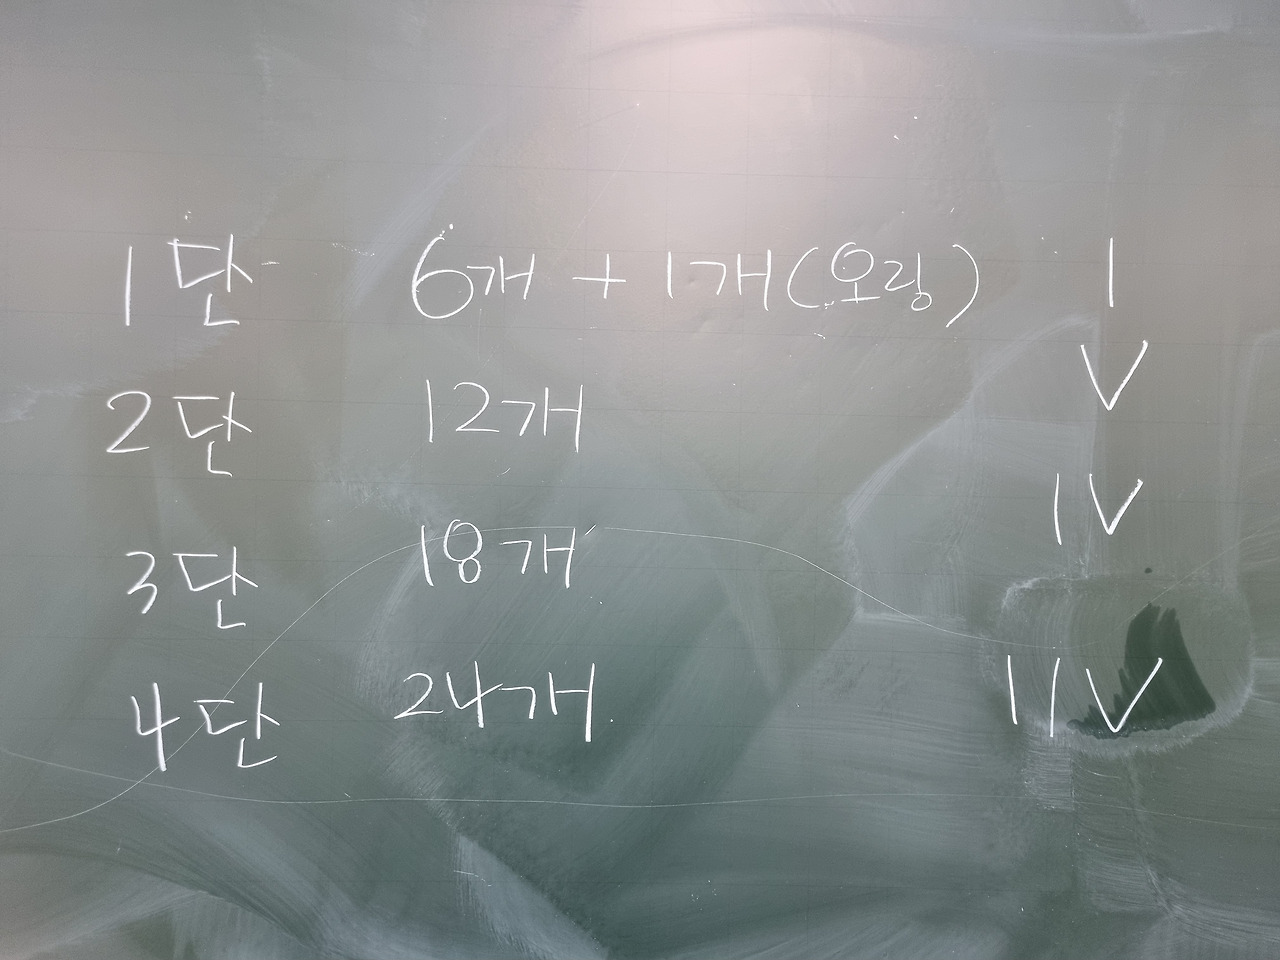 1단 6개 + 1개(오링) I
2단 12개 V
3단 18개 IV
4단 24개 IIV